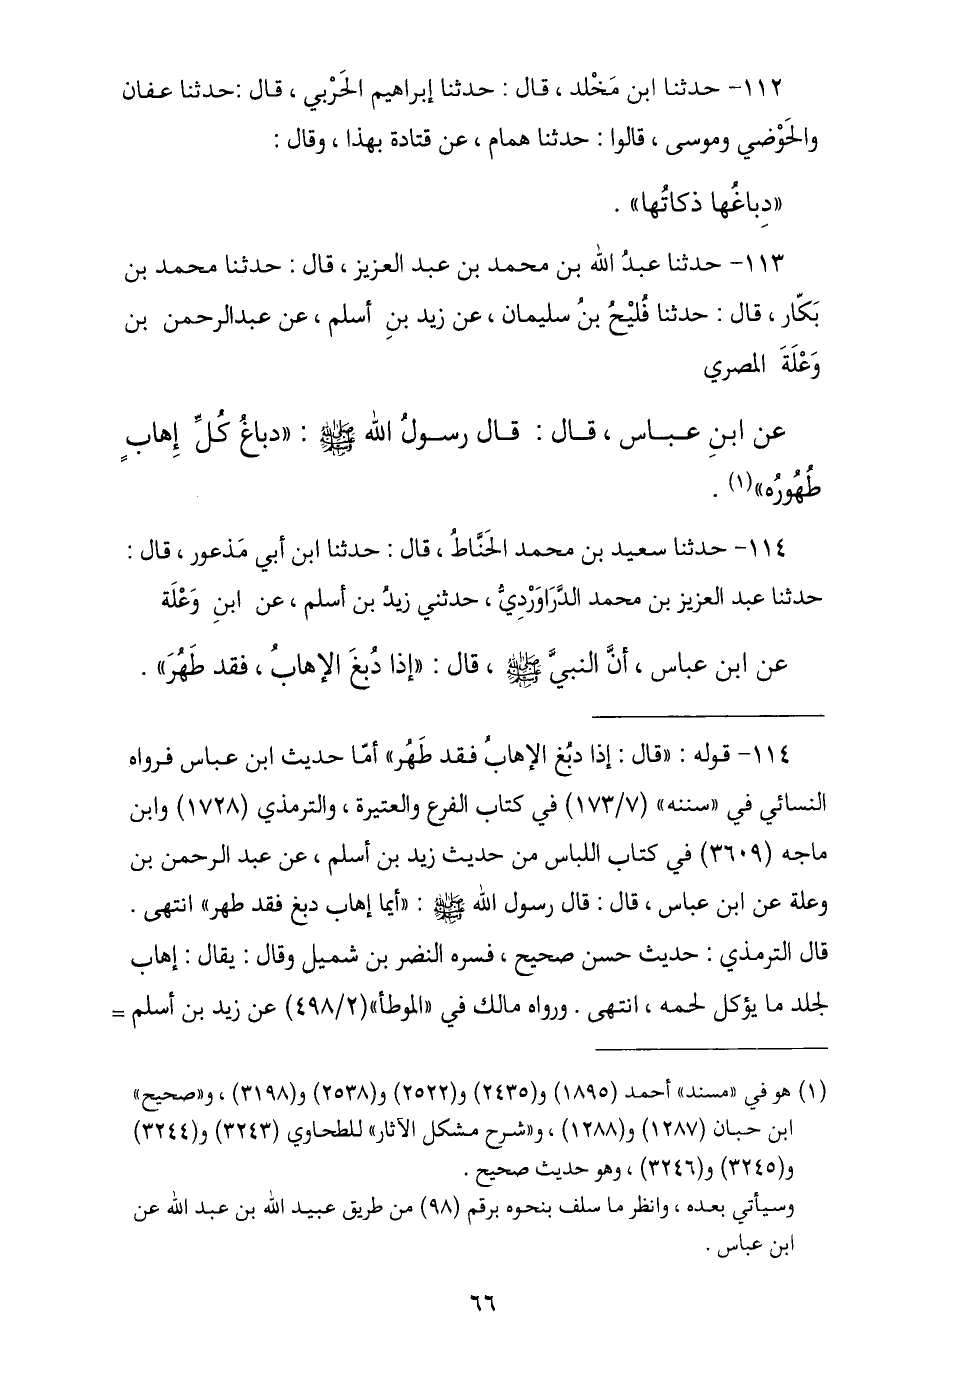 ١١٢- حدثنا ابن مَخْلد ، قال : حدثنا إبراهيم الحَرْبي ، قال :حدثنا عفان
والحَوْضي وموسى ، قالوا : حدثنا همام ، عن قتادة بهذا ، وقال :
«دِباغُها ذكاتُها» .
١١٣- حدثنا عبدُ الله بن محمد بن عبد العزيز ، قال : حدثنا محمد بن
بَكّار ، قال : حدثنا فُلَيْحُ بنُ سليمان ، عن زيد بنِ أسلم ، عن عبدالرحمن بن
وَعْلَةَ المصري
عن ابنِ عباس ، قال : قال رسولُ الله ﷺ : «دباغُ كُلِّ إِهابٍ
طُهُورُه»(١) .
١١٤- حدثنا سعيد بن محمد الحَنَّاطُ ، قال : حدثنا ابن أبي مَذعور ، قال :
حدثنا عبد العزيز بن محمد الدَّرَاوَرْدِيُّ ، حدثني زيدُ بن أسلم ، عن ابنِ وَعْلَة
عن ابن عباس ، أنَّ النبيَّ ﷺ ، قال : «إذا دُبغَ الإهابُ ، فقد طَهُرَ» .
١١٤- قوله : «قال : إذا دبُغ الإهابُ فقد طَهُر» أمّا حديث ابن عباس فرواه
النسائي في «سننه» (١٧٣/٧) في كتاب الفرع والعتيرة ، والترمذي (١٧٢٨) وابن
ماجه (٣٦٠٩) في كتاب اللباس من حديث زيد بن أسلم ، عن عبد الرحمن بن
وعلة عن ابن عباس ، قال : قال رسول الله ﷺ : «أيما إهاب دبغ فقد طهر» انتهى .
قال الترمذي : حديث حسن صحيح ، فسره النضر بن شميل وقال : يقال : إهاب
لجلد ما يؤكل لحمه ، انتهى . ورواه مالك في «الموطأ»(٤٩٨/٢) عن زيد بن أسلم =
(١) هو في «مسند» أحمد (١٨٩٥) و(٢٤٣٥) و(٢٥٢٢) و(٢٥٣٨) و(٣١٩٨) ، و«صحيح»
ابن حبان (١٢٨٧) و(١٢٨٨) ، و«شرح مشكل الآثار» للطحاوي (٣٢٤٣) و(٣٢٤٤)
و(٣٢٤٥) و(٣٢٤٦) ، وهو حديث صحيح .
وسيأتي بعده ، وانظر ما سلف بنحوه برقم (٩٨) من طريق عبيد الله بن عبد الله عن
ابن عباس .
٦٦